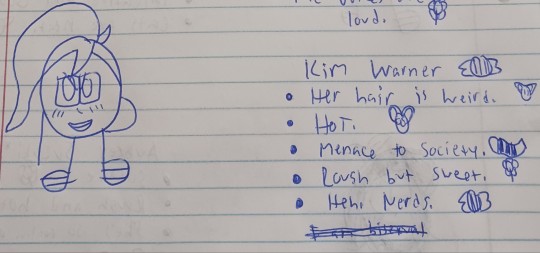 loud.
Kim Warner
• Her hair is weird.
• HoT.
• Menace to Society.
• but sweet.
• Heh, Nerds.